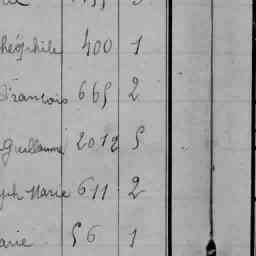 Théophile 400 1
François 665 2
Guillaume 2012 5
Joseph Marie 611 2
Marie 56 1